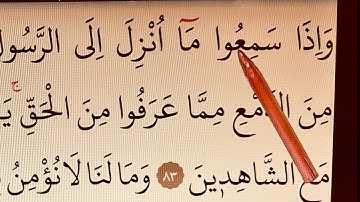 وَاِذَا سَمِعُوا مَٓا اُنْزِلَ اِلَى الرَّسُولِ
مِنَ الدَّمْعِ مِمَّا عَرَفُوا مِنَ الْحَقِّۚ
مَعَ الشَّاهِد۪ينَ ﴿٨٣﴾ وَمَا لَنَا لَا نُؤْمِنُ